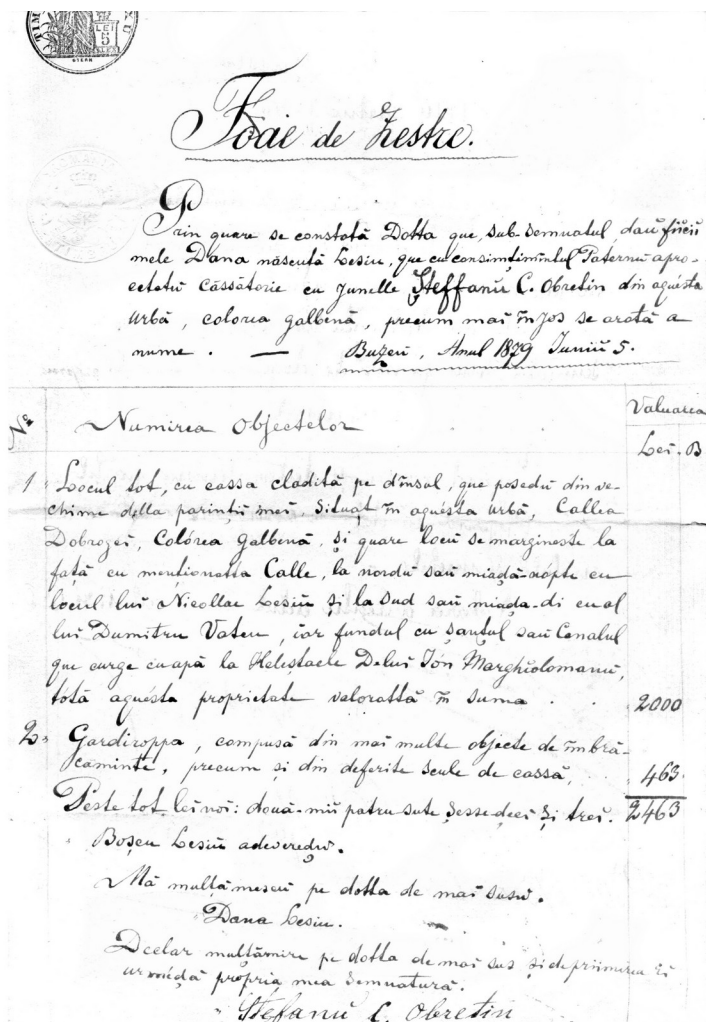 TIM
LEI
5
STERN
Foaie de Zestre.
Prin quare se constată Dotta que, sub semnatul, daŭ fiiceĭ
mele Dana născută Lesiu, que cu consimțimîntul Paternŭ a pro-
cetatŭ Căssătorie cu Junelle Șteffanŭ C. Obretin din aquésta
urbă, colorea galbenă, precum maĭ în jos se arată a
nume. — Buzeŭ, Anul 1879 Juniŭ 5.
No Numirea Objectelor Valuarea
Leĭ. B
1 Locul tot, cu cassa clădită pe dînsul, que posedŭ din ve-
chime della parințiĭ meĭ, Situat în aquésta urbă, Callea
Dobrogeĭ, Colórea galbenă, și quare locŭ se margineste la
față cu mentionatta Calle, la nordŭ saŭ miadă-nópte cu
locul luĭ Nicollae Lesiŭ și la Sud saŭ miada-di cu al
luĭ Dumitru Vateu, iar fundul cu șanțul saŭ Canalul
que curge cu apă la Heleștaele D-luĭ Ión Marghiolomanŭ,
tótă aquésta proprietate valorattă în suma . . 2000
2 Gardiroppa, compusă din maĭ multe objecte de îmbră-
caminte, precum și din deferite scule de cassă, 463.
Peste tot leĭ noĭ: două-miĭ patru sute șessedecĭ și treĭ. 2463
Boșcu Lesiŭ adeveredŭ.
Mă mulțămescŭ pe dotta de maĭ susŭ.
Dana Lesiu.
Declar mulțămire pe dotta de maĭ sus și de priimirea eĭ
urmédă propria mea semnatură.
Stefanŭ C. Obretin